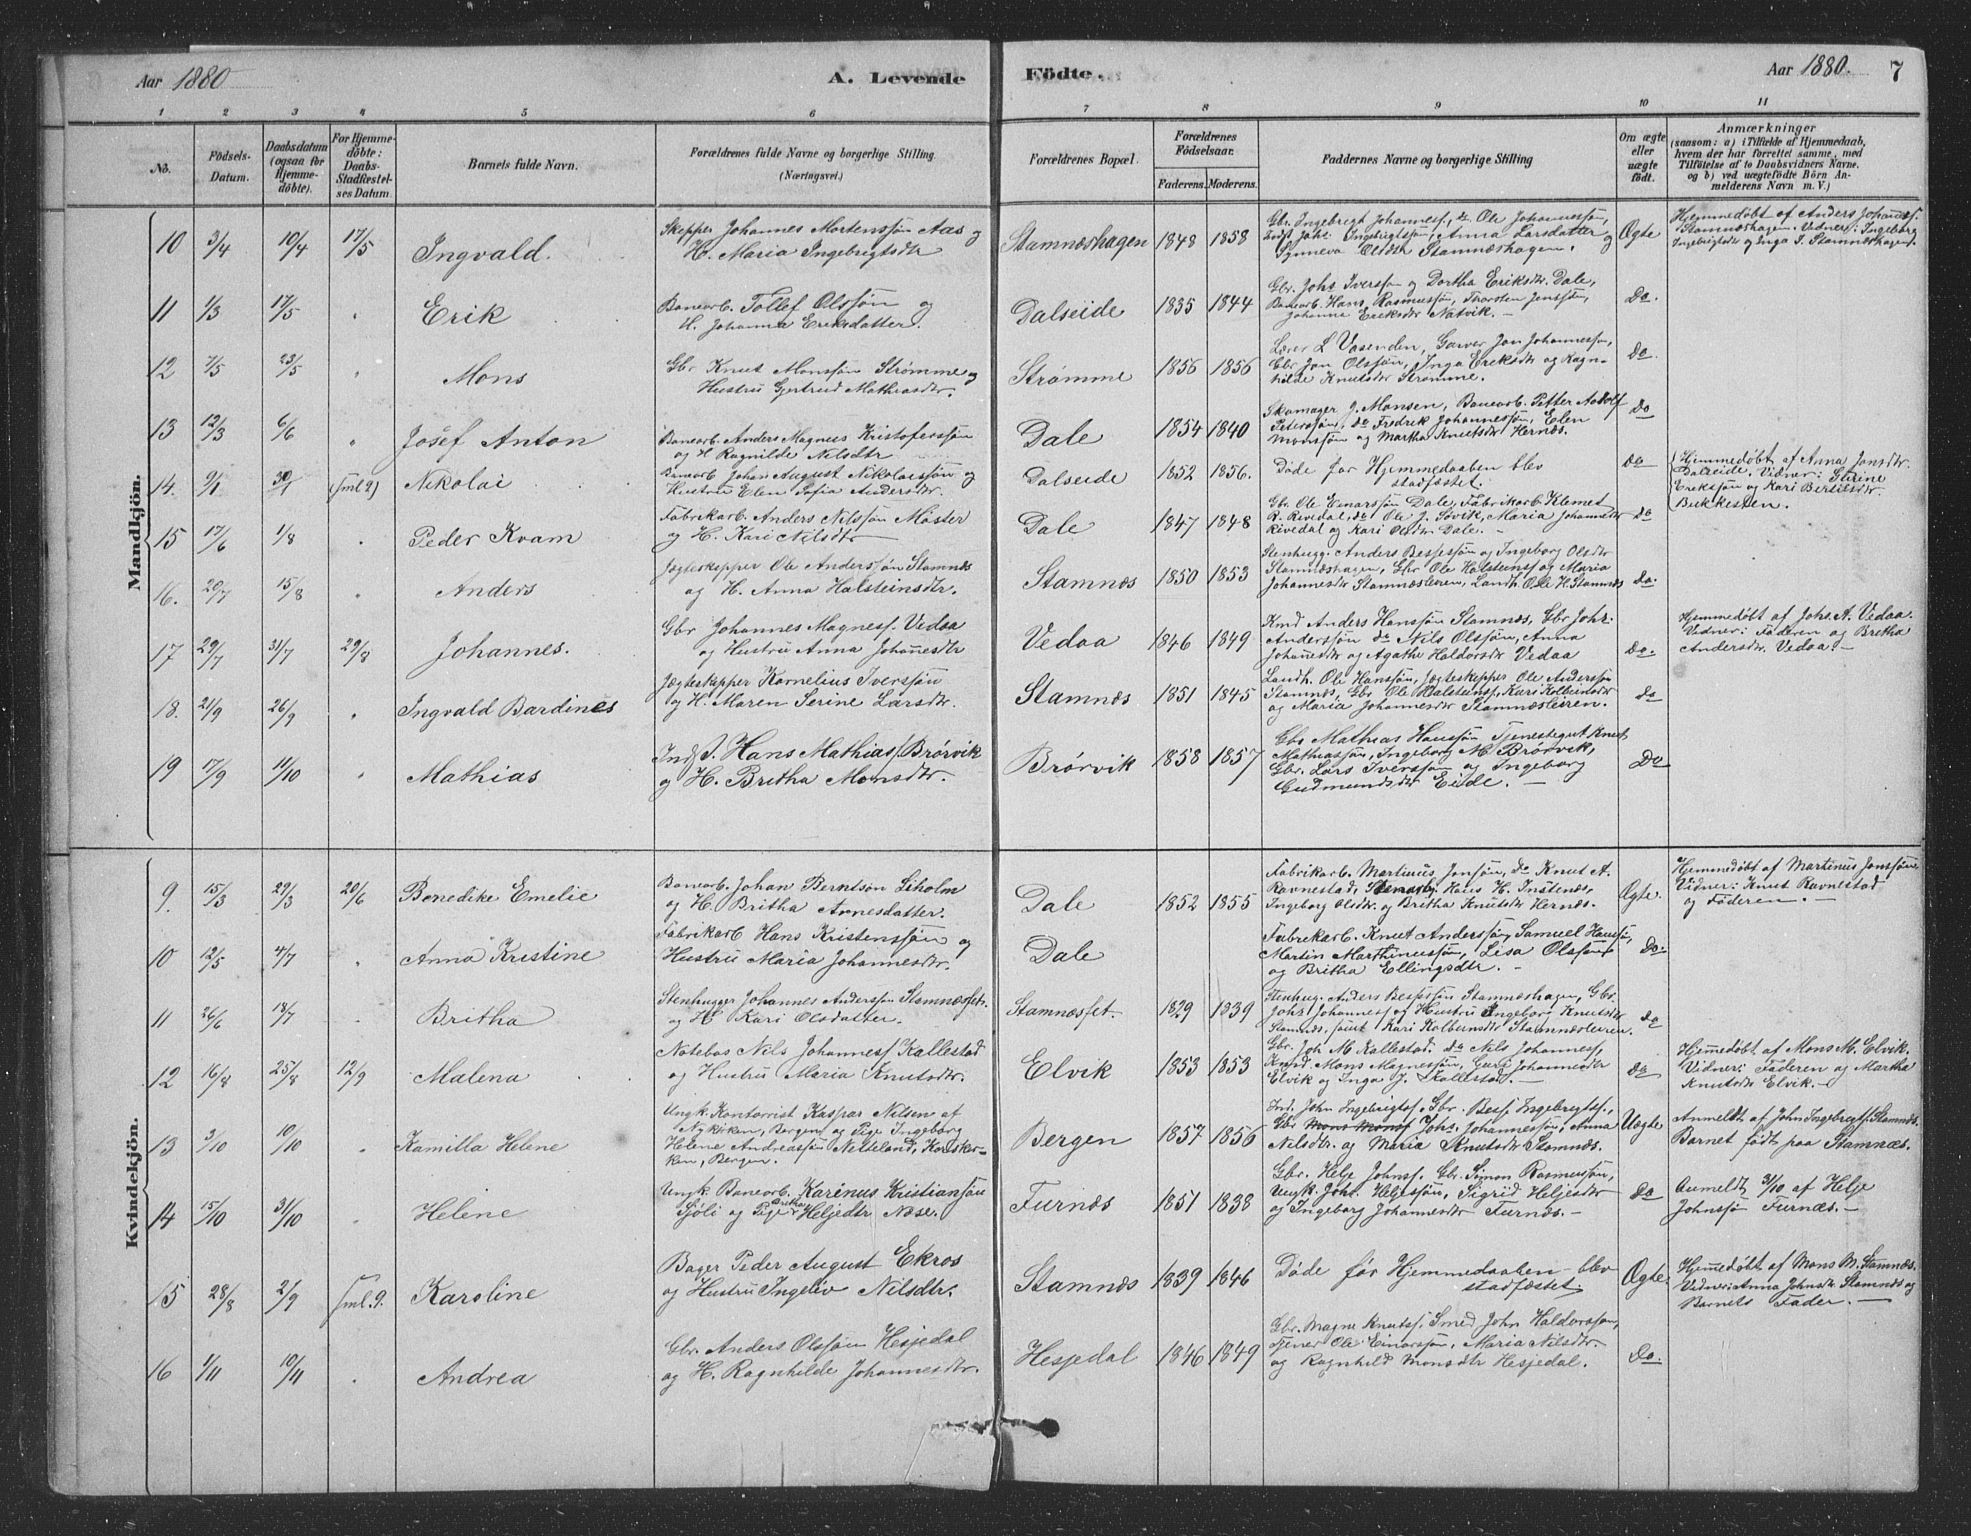 Aar 1880 A. Levende Födte. Aar 1880. 7
1 2 3 4 5 6 7 8 9 10 11
No.
Födsels-
Datum.
Daabsdatum
(ogsaa for
Hjemme-
döbte).
For Hjemme-
döbte:
Daabs-
Stadfæstel-
ses Datum.
Barnets fulde Navn.
Forældrenes fulde Navne og borgerlige Stilling.
(Næringsvei.)
Forældrenes Bopæl.
Forældrenes
Födselsaar.
Faderens. Moderens.
Faddernes Navne og borgerlige Stilling
Om ægte
eller
uægte
födt.
Anmærkninger
(saasom: a) i Tilfælde af Hjemmedaab,
hvem der har forrettet samme, med
Tilföielse af to Daabsvidners Navne,
og b) ved uægtefödte Börn An-
melderens Navn m. V.)
Mandkjön.
10 3/4 10/4 17/5 Ingvald.
Skepper Johannes Mortenssøn Aas og
H. Maria Ingebrigtsdtr
Stamnæshagen 1848 1858
Gbr. Ingebrigt Johanness., do. Ole Johannessøn,
Johs. Ingebrigtssøn, Anna Larsdatter og
Synneva Olsdtr Stamnæshagen.
Ægte
Hjemmedøbt af Anders Johanness.
Stamnæshagen. Vidner: Ingeborg
Ingebrigtsdtr og Inga J. Stamnæshagen.
11 1/3 17/5 " Erik
Banearb. Tollef Olssøn og
H. Johanna Eriksdatter.
Dalseide 1835 1844
Gbr. Johs Iverssøn og Dortha Eriksdtr Dale,
Banearb. Hans Rasmussøn, Thorsten Jenssøn,
Johanna Eriksdtr Natvik. -
Do.
12 7/5 23/5 " Mons
Gbr Knut Monssøn Strømme og
Hustru Gjertrud Mathiasdtr.
Strømme 1856 1856
Lærer L Vasenden, Garver Jon Johannessøn,
Gbr Jon Olssøn, Inga Eriksdtr og Ragn-
hilde Knutsdtr Strømme.
Do.
13 12/3 6/6 " Josef Anton
Banearb. Anders Magnus Kristoferssøn
og H Ragnilde Nilsdtr
Dale 1854 1840
Skomager J. Monsen, Banearb. Petter Adolf
Peterssøn, do Fredrik Johannessøn, Elen
Monssøn og Martha Knutsdtr Hernæs.
Do
14. 9/1 30/1 (sml 2) Nikolai
Banearb Johan August Nikolaissøn og
Hustru Elen Sofia Andersdtr.
Dalseide 1852 1856.
Døde før Hjemmedaaben blev
stadfæstet.
Do
Hjemmedøbt af Anna Jonsdtr.
Dalseide, Vidner: Serine
Erikssøn og Kari Bertilsdtr.
Bukkesten.
15 17/6 1/8 " Peder Kvam
Fabrikarb. Anders Nilssøn Møster
og H. Kari Nilsdtr
Dale 1847 1848
Gbr Ole Einarssøn Dale, Fabrikarb Klemet
R. Rivedal, do Ole J. Søvik, Maria Johannesdtr
Rivedal og Kari Olsdtr Dale. -
do
16. 20/7 15/8 " Anders
Jægteskepper Ole Anderssøn Stamnæs
og H. Anna Halsteinsdtr.
Stamnæs 1850 1853
Stenhugg. Anders Bessessøn og Ingeborg Olsdtr
Stamnæshagen, Gbr Ole Halsteinss og Maria
Johannesdtr Stamnæsleiren, Landh. Ole H. Stamnæs
do.
17 29/7 31/7 29/8 Johannes.
Gbr Johannes Magness. Vedaa
og Hustru Anna Johannesdtr
Vedaa 1846 1849
Kmd Anders Hanssøn Stamnæs, Gbr Johs.
Anderssøn do Nils Olssøn, Anna
Johannesdtr og Agathe Haldorsdtr Vedaa
do.
Hjemmedøbt af Johs. A. Vedaa.
Vidner: Faderen og Britha
Andersdtr. Vedaa. -
18. 21/9 26/9 " Ingvald Bardines
Jægteskepper Kornelius Iverssøn
og H. Maren Serine Larsdtr.
Stamnæs 1851 1845
Landh. Ole Hanssøn, Jægteskepper Ole Anderssøn
Stamnæs, Gbr Ole Halsteinss, Kari Kolbeinsdtr
og Maria Johannesdtr Stamnæsleiren.
do
19 17/9 11/10 " Mathias
Ind. J. Hans Mathiass. Brørvik
og H. Britha Monsdtr.
Brørvik 1858 1857
Gbr Mathias Hanssøn Tjenestegut Knut
Mathiassøn, Ingeborg M. Brørvik,
Gbr. Lars Iverssøn og Ingeborg
Gudmundsdtr Eide. -
Do
Kvindekjön.
9. 15/3 29/3 20/6 Benedike Emelie
Banearb. Johan Berntsøn Liholm
og H. Britha Arnesdatter.
Dale 1852 1855
Fabrikarb. Martinus Jonsøn, do Knut A.
Ravnestad, Hans H. Instenæs,
Ingeborg Olsdtr. og Britha Knutsdtr Hernæs.
Ægte.
Hjemmdøbt af Martinus Jonssøn
Vidner: Knut Ravnestad
og Faderen. -
10 12/5 4/7 " Anna Kristine
Fabrikarb Hans Kristenssøn og
Hustru Maria Johannesdtr.
Dale
Fabrikarb. Knut Anderssøn, Samuel Hanssøn,
Martin Marthinussøn, Lisa Olssøn
og Britha Ellingsdtr. -
Do.
11 26/6 18/7 " Britha
Stenhugger Johannes Anderssøn Stamnæsfet.
og H Kari Olsdatter.
Stamnæsfet. 1829 1839
Stenhug. Anders Bessessøn Stamnæshagen, Gbr.
Johs Johanness og Hustru Ingeborg Knutsdtr
Stamnæs, samt Kari Kolbeinsdtr Stamnæsleiren.
do
12 16/8 25/8 12/9 Malena
Notebas Nils Johanness. Kallestad
og Hustru Maria Knutsdtr.
Elvik 1853 1853
Gbr. Joh M. Kallestad. do Nils Johanness,
Kmd. Mons Magnessøn, Guri Johannesdtr
Elvik og Inga J. Kallestad. -
do
Hjemmedøbt af Mons M. Elvik.
Vidner: Faderen og Martha
Knutsdtr Elvik. -
13 3/10 10/10 " Kamilla Helene
Ungk. Kontorrist Kaspar Nilsen af
Nykirken, Bergen og Pige Ingeborg
Helene Andreassøn Netteland, Korskir-
ken, Bergen.
Bergen 1857 1856
Ind. John Ingebrigts. Gbr. Besse Ingebrigtss.,
Gbr Mons Monss Johs. Johannessøn, Anna
Nilsdtr. og Maria Knutsdtr Stamnæs.
Uægte
Anmeldt af John Ingebrigts. Stamnæs.
Barnet født paa Stamnæs.
14 15/10 31/10 " Helene
Ungk. Banearb. Karinus Kristianssøn
Sjöli og Pige Heljedtr Nese.
Furnæs 1851 1838
Gbr. Helje Johnss. Gbr. Simon Rasmussøn,
Ungk. Johs. Heljessøn, Sigrid Heljesdtr
og Ingeborg Johannesdtr Furnæs. -
do
Anmeldt 31/10 af Helje
Johnssø Furnæs. -
15 28/8 2/9 sml. 9. Karoline
Bager Peder August Ekros
og Hustru Ingeliv Nilsdtr.
Stamnæs 1839 1846
Døde før Hjemmedaaben blev
stadfæstet
Ægte.
Hjemmedøbt af Mons M. Stamnæs.
Vidner: Anna Johnsdtr Stamnæs og
Barnets Fader. -
16 1/11 10/11 . Andrea
Gbr. Anders Olssøn Hesjedal
og H. Ragnhilde Johannesdtr.
Hesjedal 1846 1849
Gbr. Magne Knutss. Smed John Haldorssøn,
Tjener Ole Einarssøn, Maria Nilsdtr.
og Ragnhild Monsdtr Hesjedal.
Do.